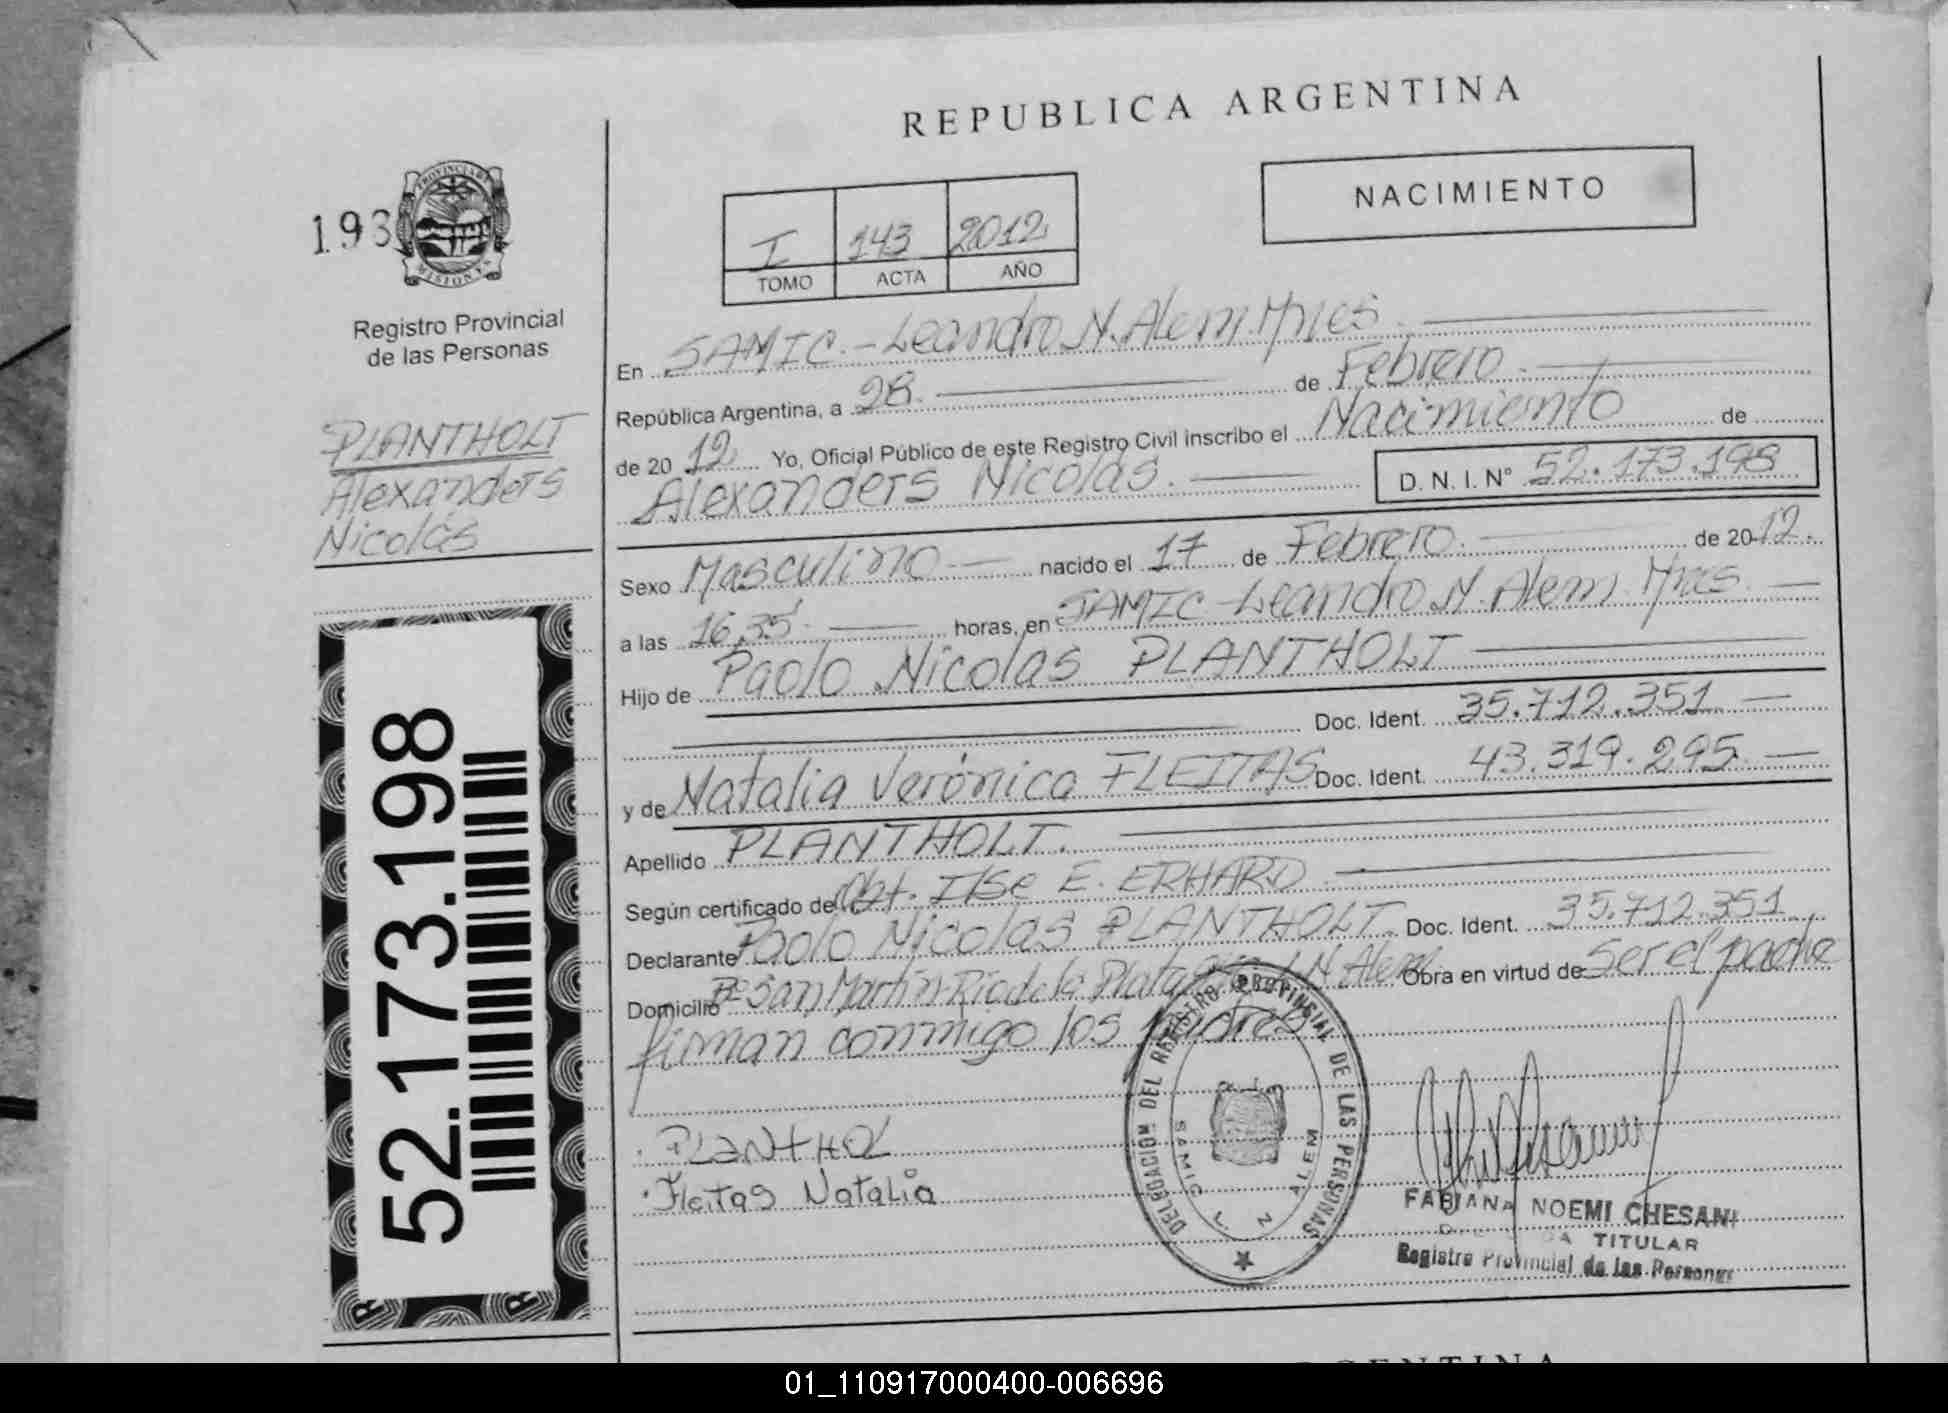 REPUBLICA ARGENTINA
NACIMIENTO
193
PROVINCIA DE MISIONES
Registro Provincial
de las Personas
I 143 2012
TOMO ACTA AÑO
En SAMIC.- Leandro N. Alem. Mnes.
República Argentina, a 28. de Febrero.
de 2012 Yo, Oficial Público de este Registro Civil inscribo el Nacimiento de
Alexanders Nicolás.
D. N. I. Nº 52.173.198
PLANTHOLT
Alexanders
Nicolás
Sexo Masculino nacido el 17 de Febrero. de 2012.
a las 16,35 horas, en SAMIC - Leandro N. Alem. Mnes.
Hijo de Paolo Nicolás PLANTHOLT
Doc. Ident. 35.712.351
y de Natalia Verónica FLEITAS Doc. Ident. 43.319.295
Apellido PLANTHOLT.
Según certificado de Obt. Ilse E. ERHARD
Declarante Paolo Nicolás PLANTHOLT. Doc. Ident. 35.712.351
Domicilio Bº San Martín-Río de la Plata L N Alem Obra en virtud de Ser el padre
firman conmigo los padres
PLANTHOL
Fleitas Natalia
DELEGACION DEL REGISTRO PROVINCIAL DE LAS PERSONAS
SAMIC L. N. ALEM
FABIANA NOEMI CHESANI
TITULAR
Registro Provincial de las Personas
52.173.198
01_110917000400-006696